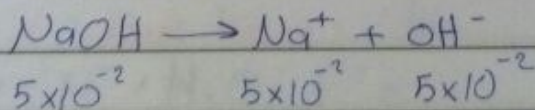 NaOH → Na⁺ + OH⁻
5x10⁻² 5x10⁻² 5x10⁻²